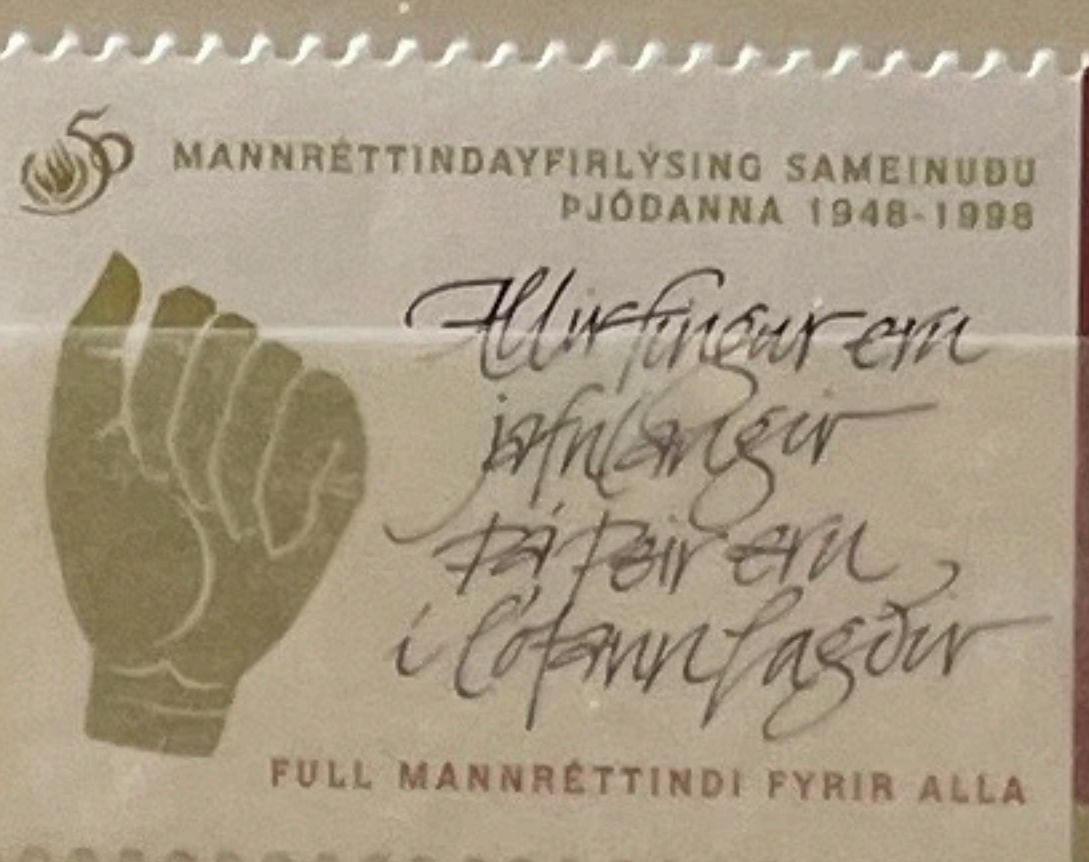 50
MANNRÉTTINDAYFIRLÝSING SAMEINUÐU
ÞJÓÐANNA 1948-1998
Allir fingur eru
jafnlangir
þá þeir eru
í lófann lagðir
FULL MANNRÉTTINDI FYRIR ALLA